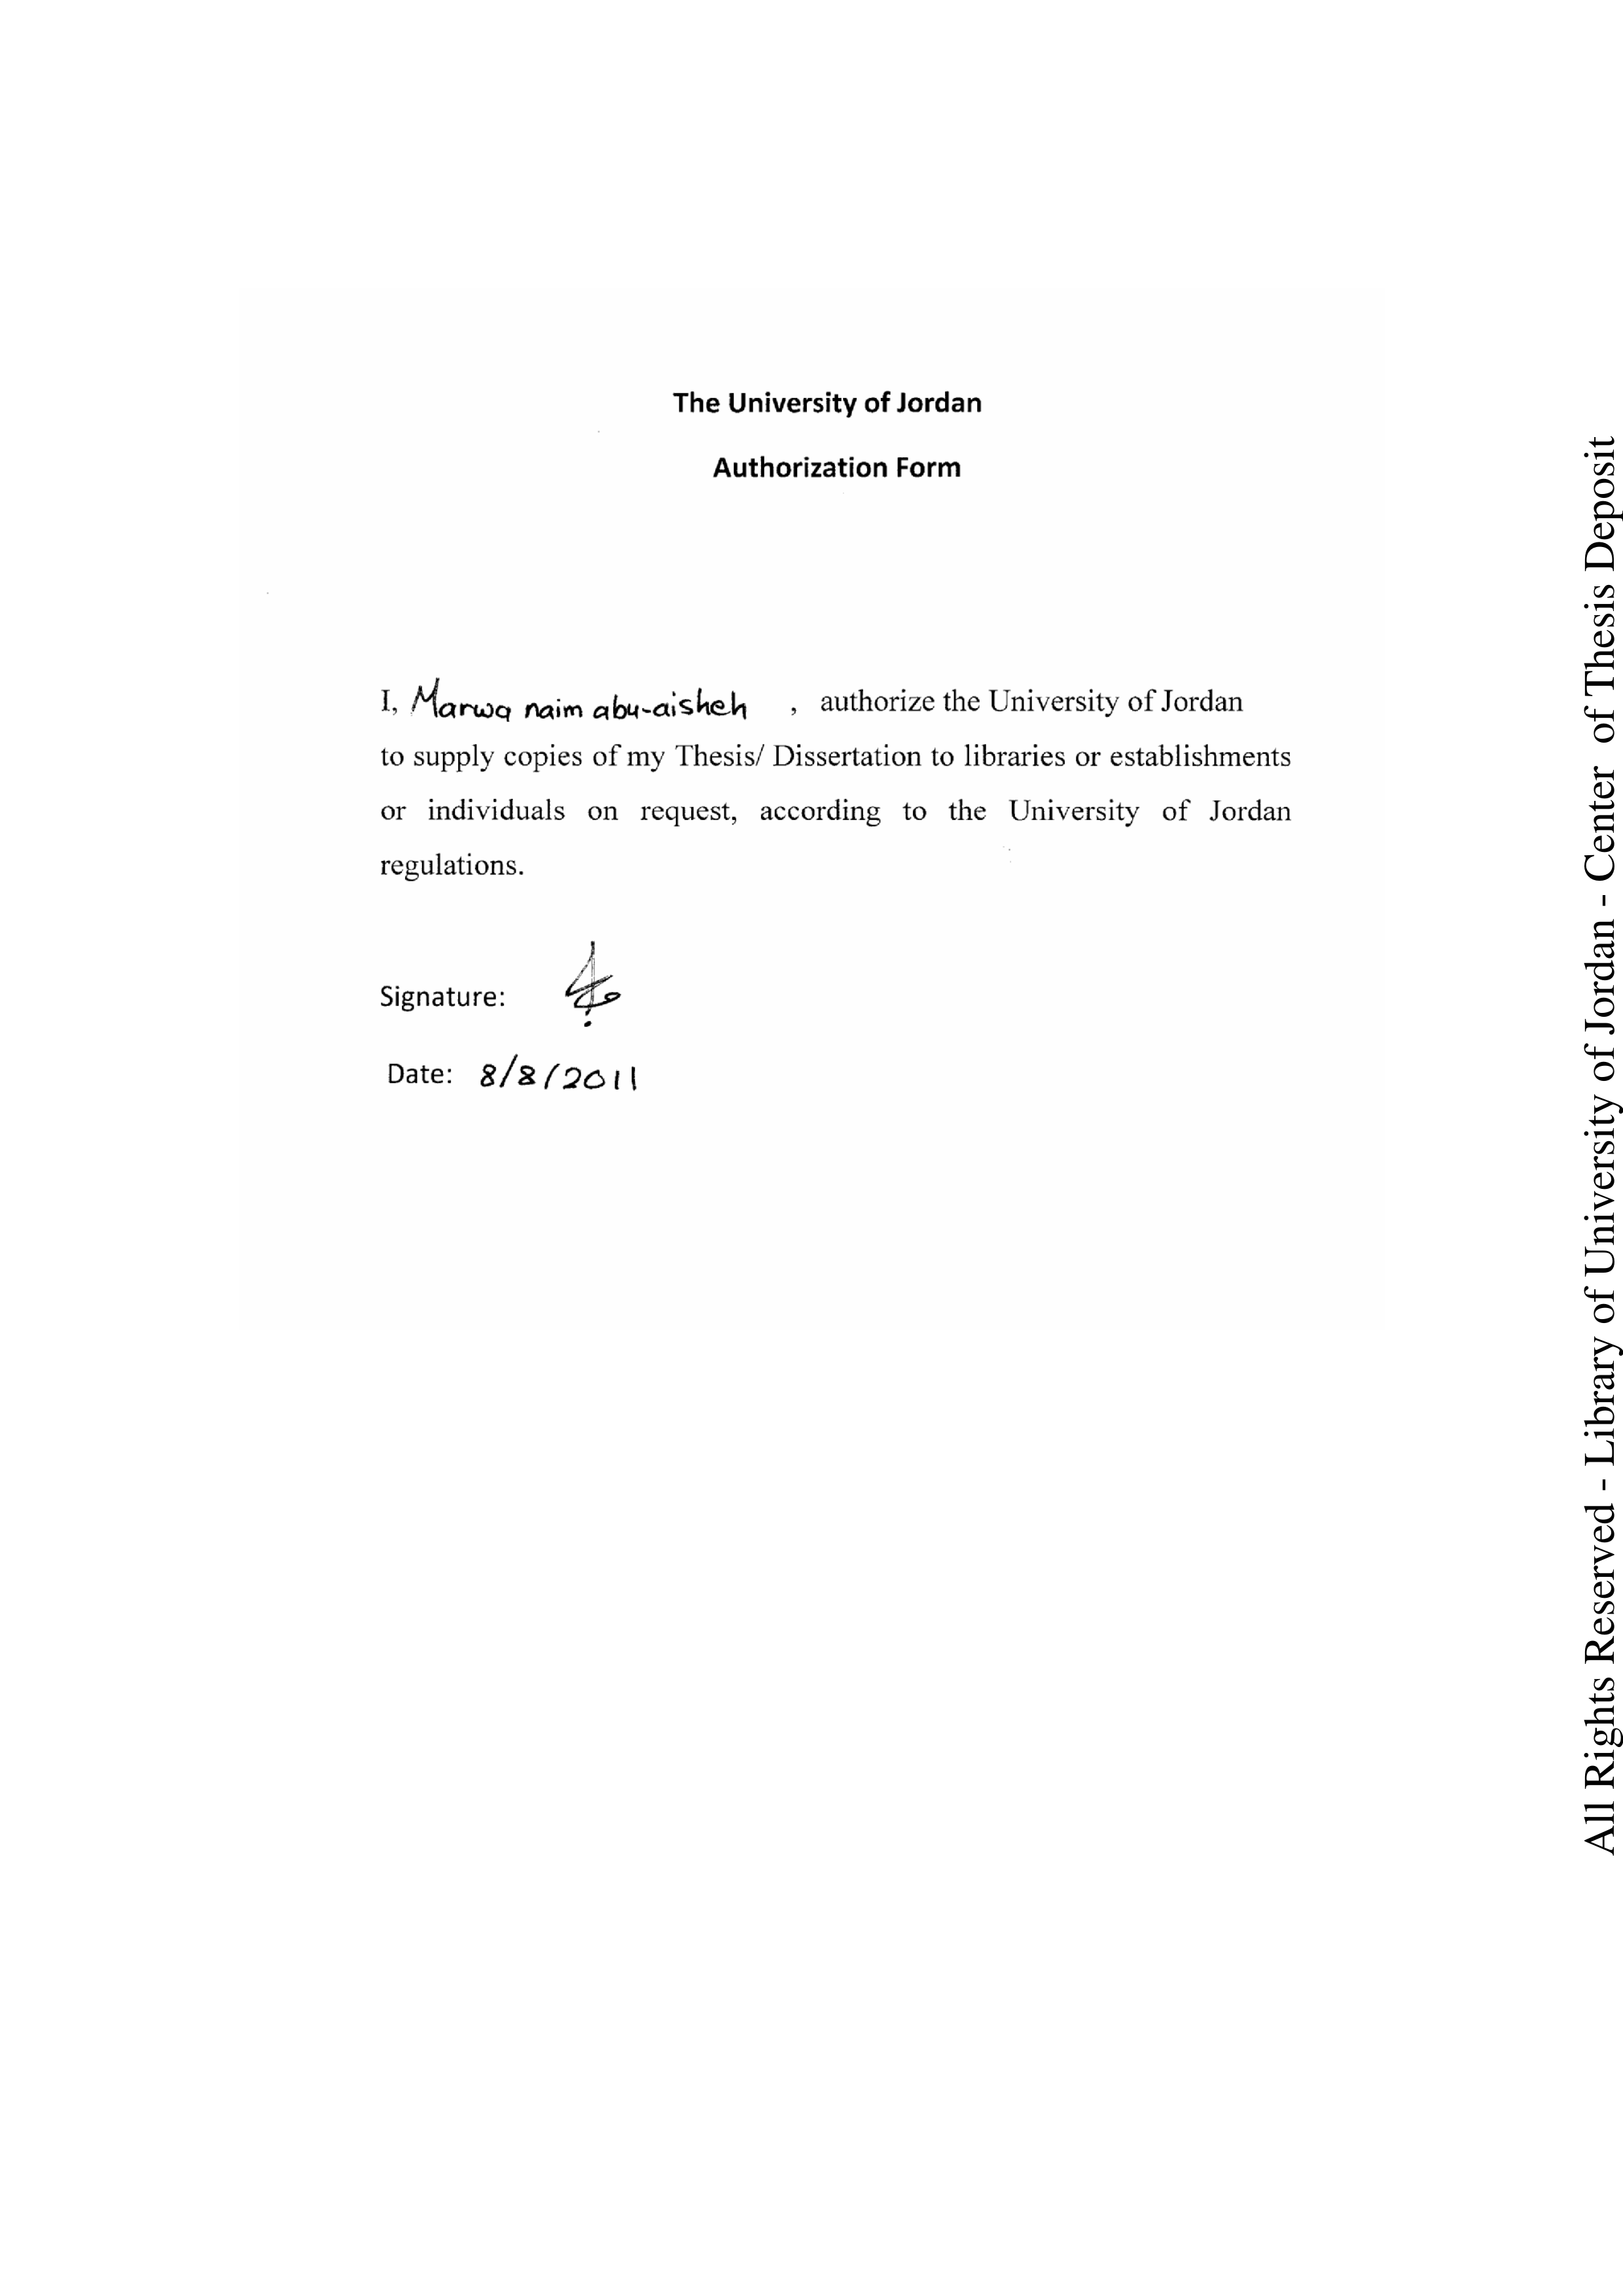 The University of Jordan
Authorization Form
I, Marwa naim abu-aisheh , authorize the University of Jordan
to supply copies of my Thesis/ Dissertation to libraries or establishments
or individuals on request, according to the University of Jordan
regulations.
Signature:
Date: 8/8/2011
All Rights Reserved - Library of University of Jordan - Center of Thesis Deposit